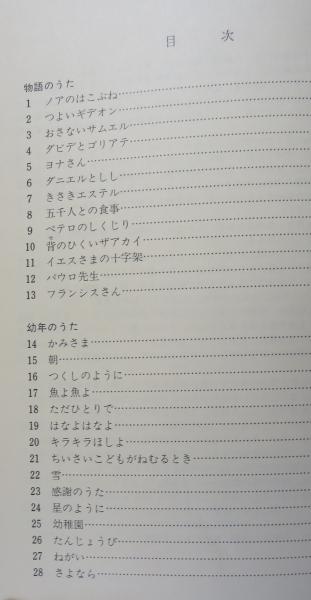 目 次
物語のうた
1 ノアのはこぶね
2 つよいギデオン
3 おさないサムエル
4 ダビデとゴリアテ
5 ヨナさん
6 ダニエルとしし
7 きさきエステル
8 五千人との食事
9 ペテロのしくじり
10 背のひくいザアカイ
11 イエスさまの十字架
12 パウロ先生
13 フランシスさん
幼年のうた
14 かみさま
15 朝
16 つくしのように
17 魚よ魚よ
18 ただひとりで
19 はなよはなよ
20 キラキラほしよ
21 ちいさいこどもがねむるとき
22 雪
23 感謝のうた
24 星のように
25 幼稚園
26 たんじょうび
27 ねがい
28 さよなら